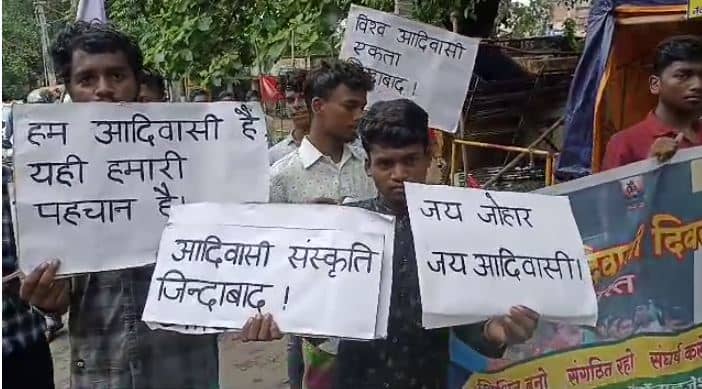 विश्व आदिवासी
एकता
जिन्दाबाद !
हम आदिवासी हैं
यही हमारी
पहचान है।
आदिवासी संस्कृति
जिन्दाबाद !
जय जोहार
जय आदिवासी।
दिवस
संगठित रहो संघर्ष करो